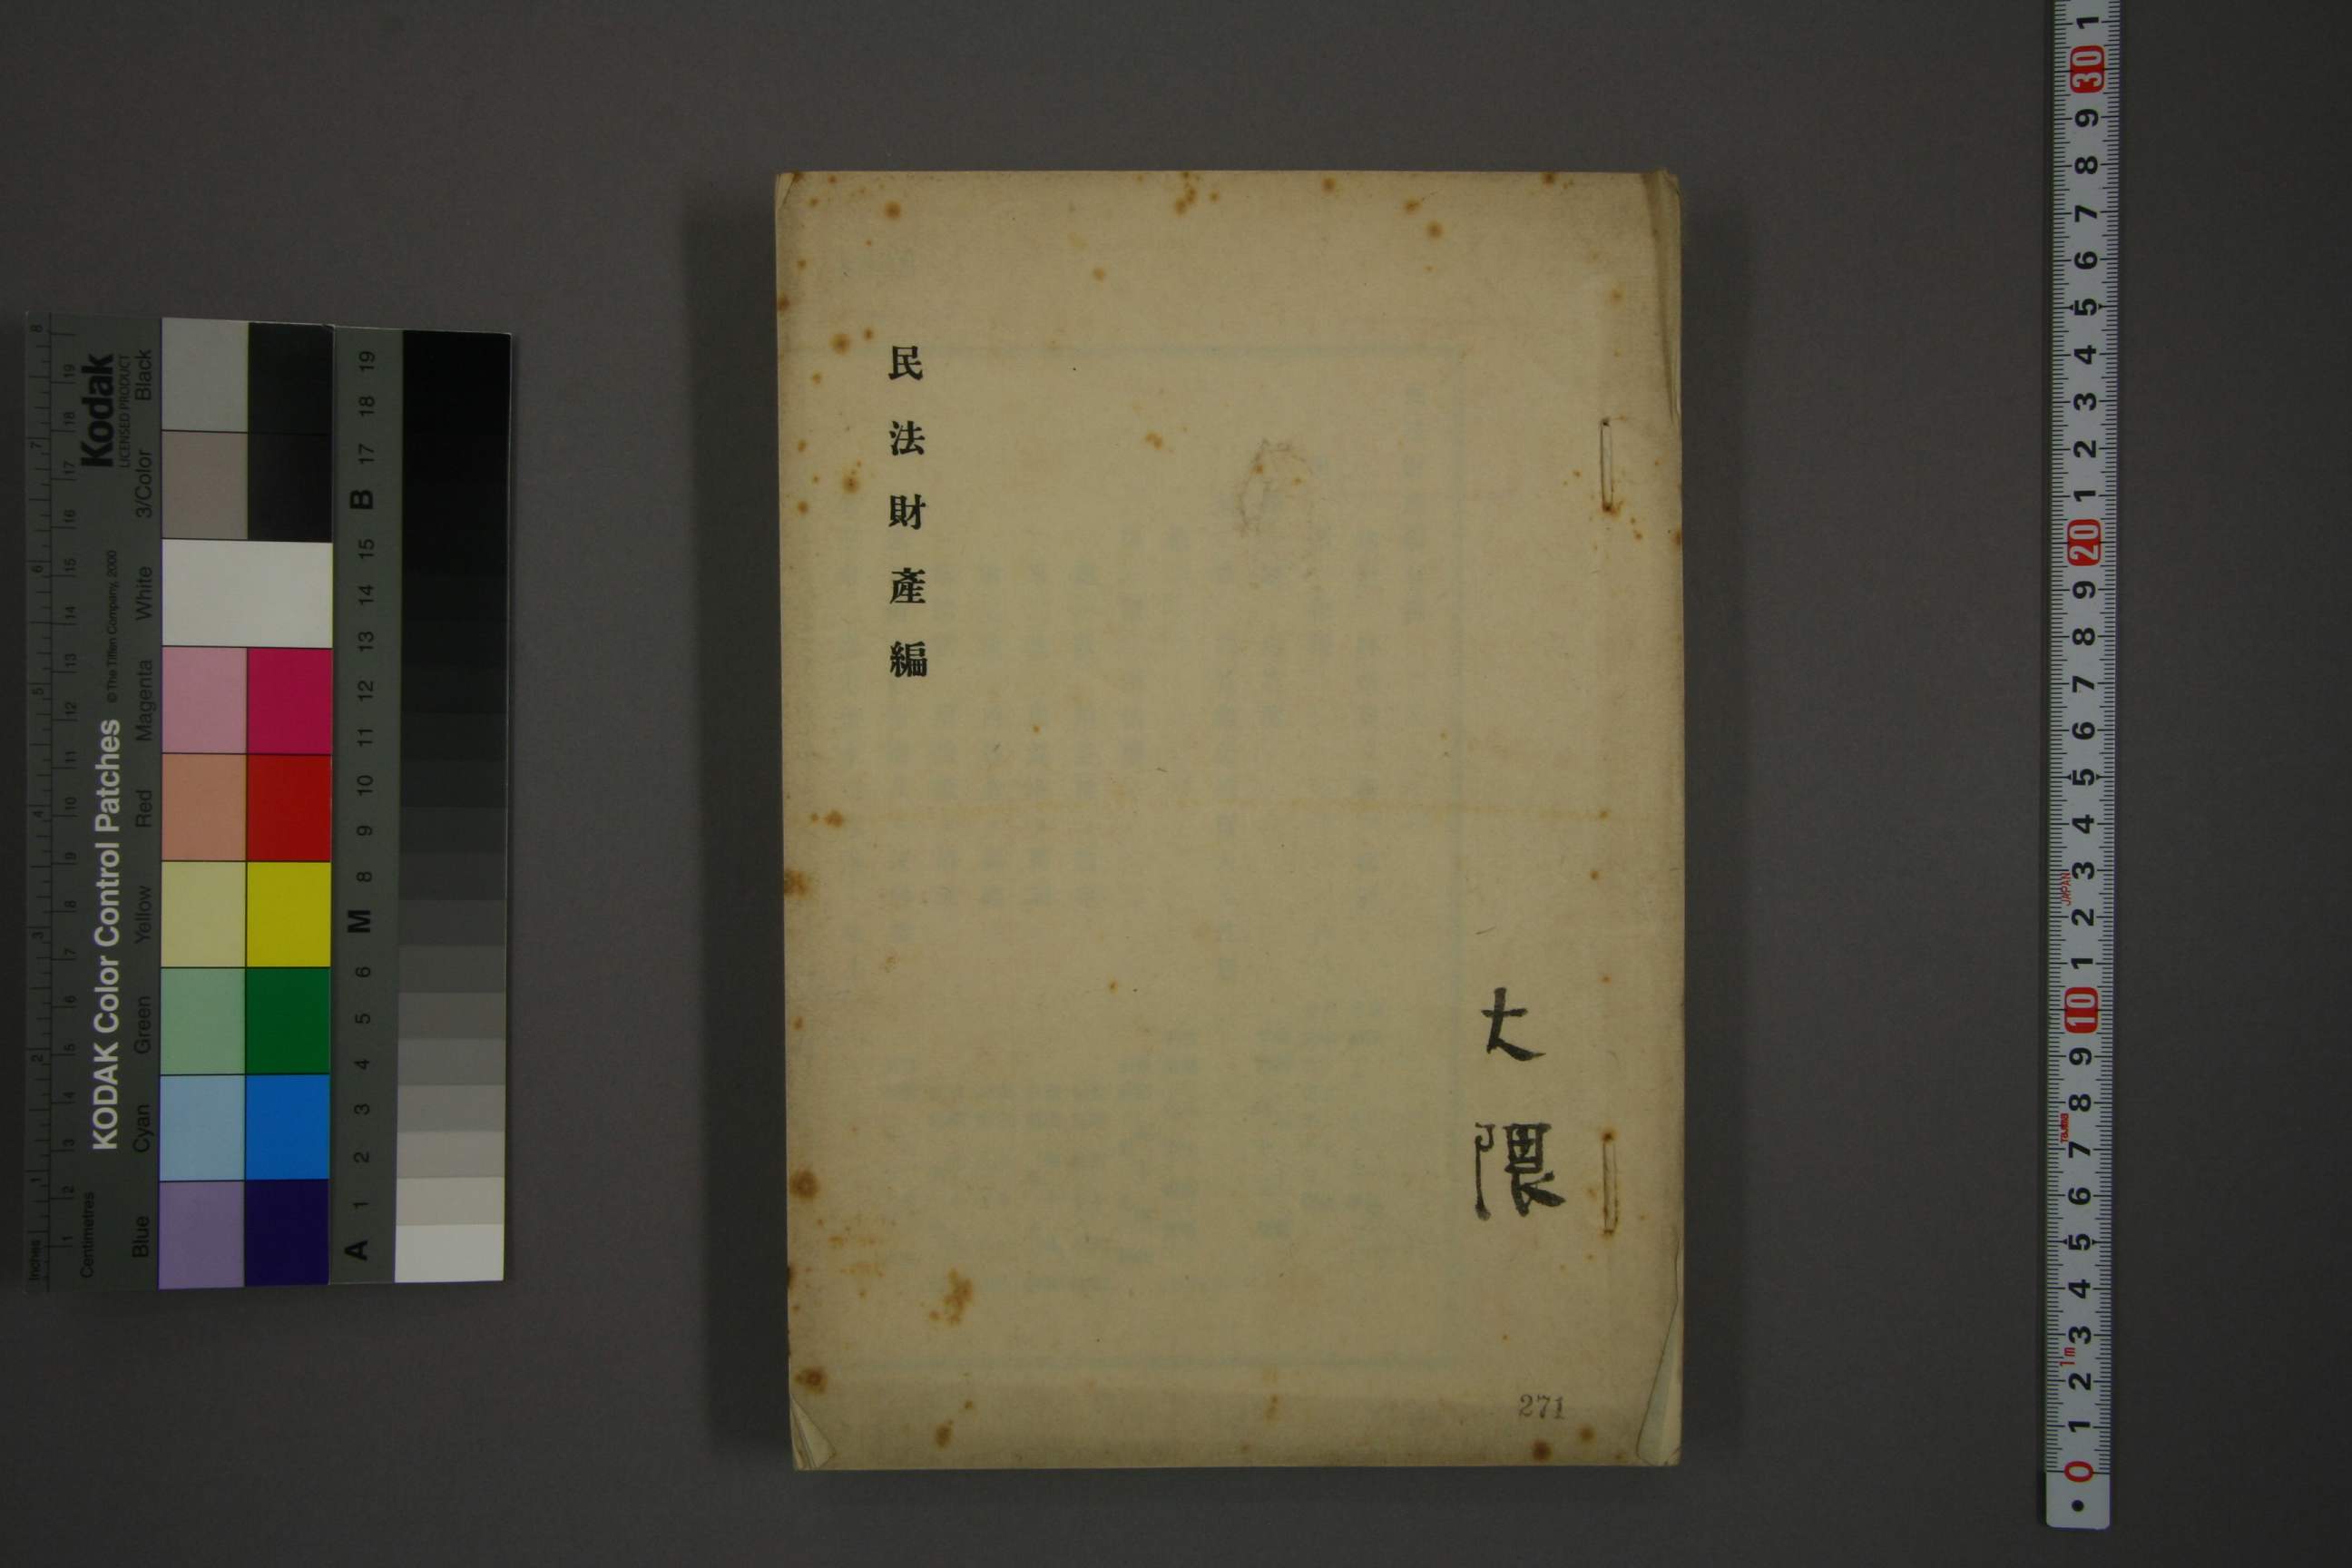 民法財產編
大隈
271
KODAK Color Control Patches
© The Tiffen Company, 2000
Kodak
LICENSED PRODUCT
Inches
Centimetres
Blue
Cyan
Green
Yellow
Red
Magenta
White
3/Color
Black
A 1 2 3 4 5 6 M 8 9 10 11 12 13 14 15 B 17 18 19
1 30 9 8 7 6 5 4 3 2 1 20 9 8 7 6 5 4 3 2 1 10 9 8 7 6 5 4 3 2 1 0
JAPAN
1m